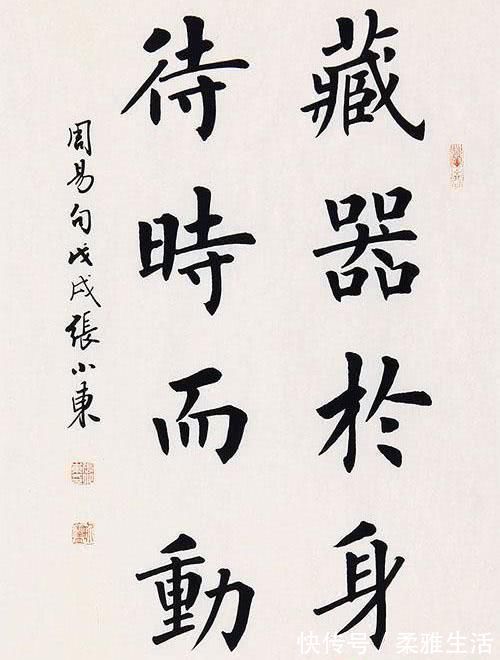 藏器於身
待時而動
周易句戊戌張小東
快传号/柔雅生活